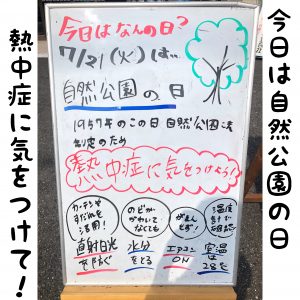 今日は自然公園の日
熱中症に気をつけて!
今日はなんの日?
7/21(火)は…
自然公園の日
1957年のこの日 自然公園法
制定のため
熱中症に気をつけよう!
カーテンや
すだれを
活用!
直射日光
を防ぐ
のどが
かわいて
なくても
水分
をとる
がまん
せず!
エアコン
ON
温度
計で
確認!
室温
は
28℃